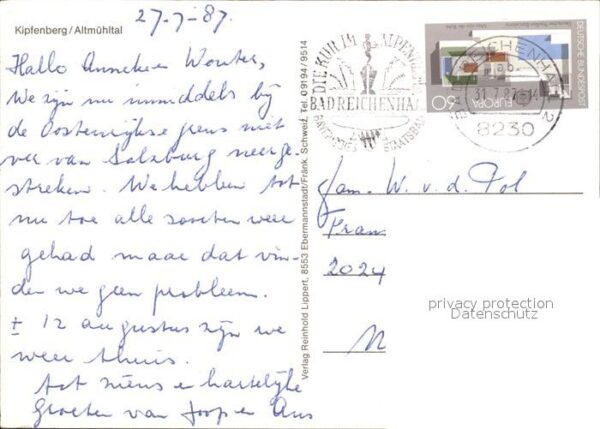 Kipfenberg / Altmühltal
27-7-87.
Hallo Anneke en Wouter,
We zijn nu inmiddels bij
de Oostenrijkse grens niet
ver van Salzburg neerge-
streken. We hebben tot
nu toe alle soorten weer
gehad maar dat vin-
den we geen probleem.
± 12 augustus zijn we
weer thuis.
tot ziens en hartelijke
Groeten van Joop en Ans
Verlag Reinhold Lippert, 8553 Ebermannstadt/Fränk. Schweiz, Tel. 09194/9514
DIE KUR IM ALPENKLIMA
BAD REICHENHALL
BAYERISCHES STAATSBAD
BAD REICHENHALL 2
ab
31.7.87-14
8230
60
EUROPA
DEUTSCHE BUNDESPOST
Fam. W. v. d. Pol
Fran
2024
privacy protection
Datenschutz